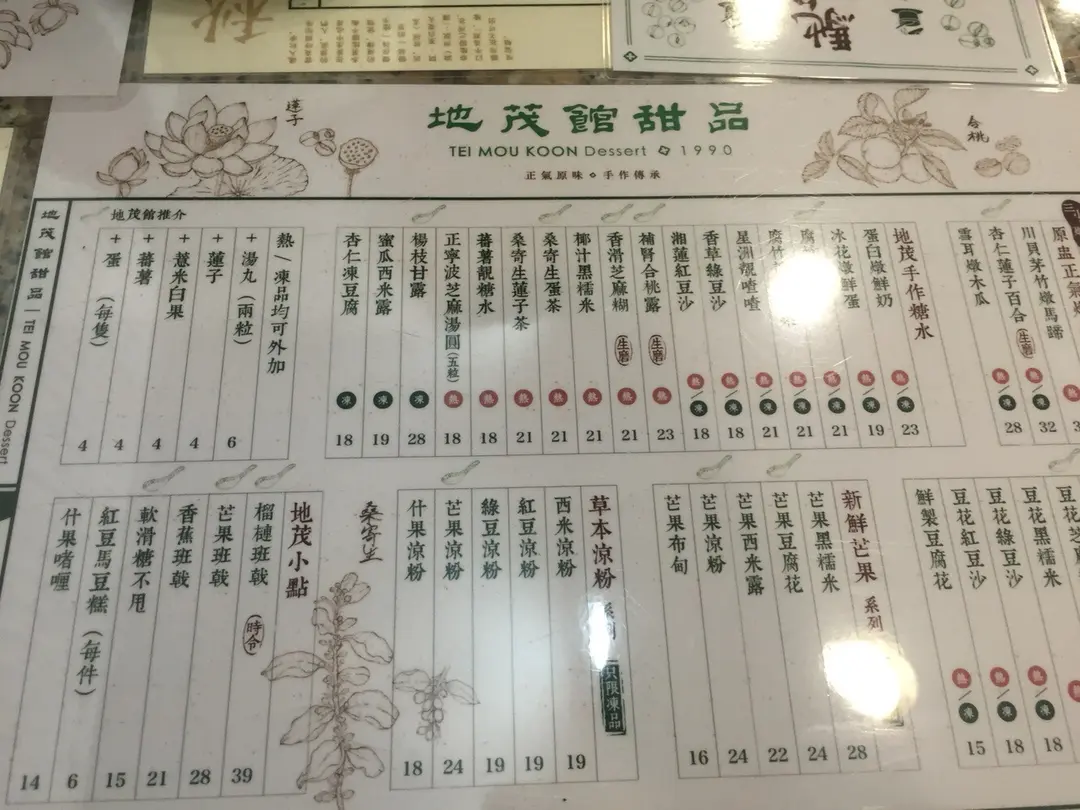 蓮子
合桃
地茂館甜品
TEI MOU KOON Dessert 1990
正氣原味 手作傳承
地茂館甜品 | TEI MOU KOON Dessert
地茂館推介
川貝茅竹燉馬蹄 熱/凍 32
杏仁蓮子百合 (生磨) 熱/凍 28
雪耳燉木瓜
地茂手作糖水
蛋白燉鮮奶 熱/凍 23
冰花燉鮮蛋 熱/凍 19
熱/凍 21
腐竹
熱/凍 21
星洲靚喳喳 熱/凍 21
香草綠豆沙 熱/凍 18
湘蓮紅豆沙 熱/凍 18
補腎合桃露 (生磨) 熱 23
香滑芝麻糊 (生磨) 熱 21
椰汁黑糯米 熱 21
桑寄生蛋茶 熱 21
桑寄生蓮子茶 熱 21
蕃薯靚糖水 熱 18
正寧波芝麻湯圓(五粒) 熱 18
楊枝甘露 凍 28
蜜瓜西米露 凍 19
杏仁凍豆腐 凍 18
熱/凍品均可外加
+湯丸(兩粒) 6
+蓮子 4
+薏米白果 4
+蕃薯 4
+蛋(每隻) 4
黑糯米 熱/凍 18
豆花綠豆沙 熱/凍 18
豆花紅豆沙 熱/凍 15
鮮製豆腐花
新鮮芒果系列
芒果黑糯米 28
芒果豆腐花 24
芒果西米露 22
芒果涼粉 24
芒果布甸 16
草本涼粉系列 只限凍品
西米涼粉 19
紅豆涼粉 19
綠豆涼粉 19
芒果涼粉 24
什果涼粉 18
桑寄生
地茂小點
榴槤班戟 (時令) 39
芒果班戟 28
香蕉班戟 21
軟滑糖不甩 15
紅豆馬豆糕(每件) 6
什果啫喱 14